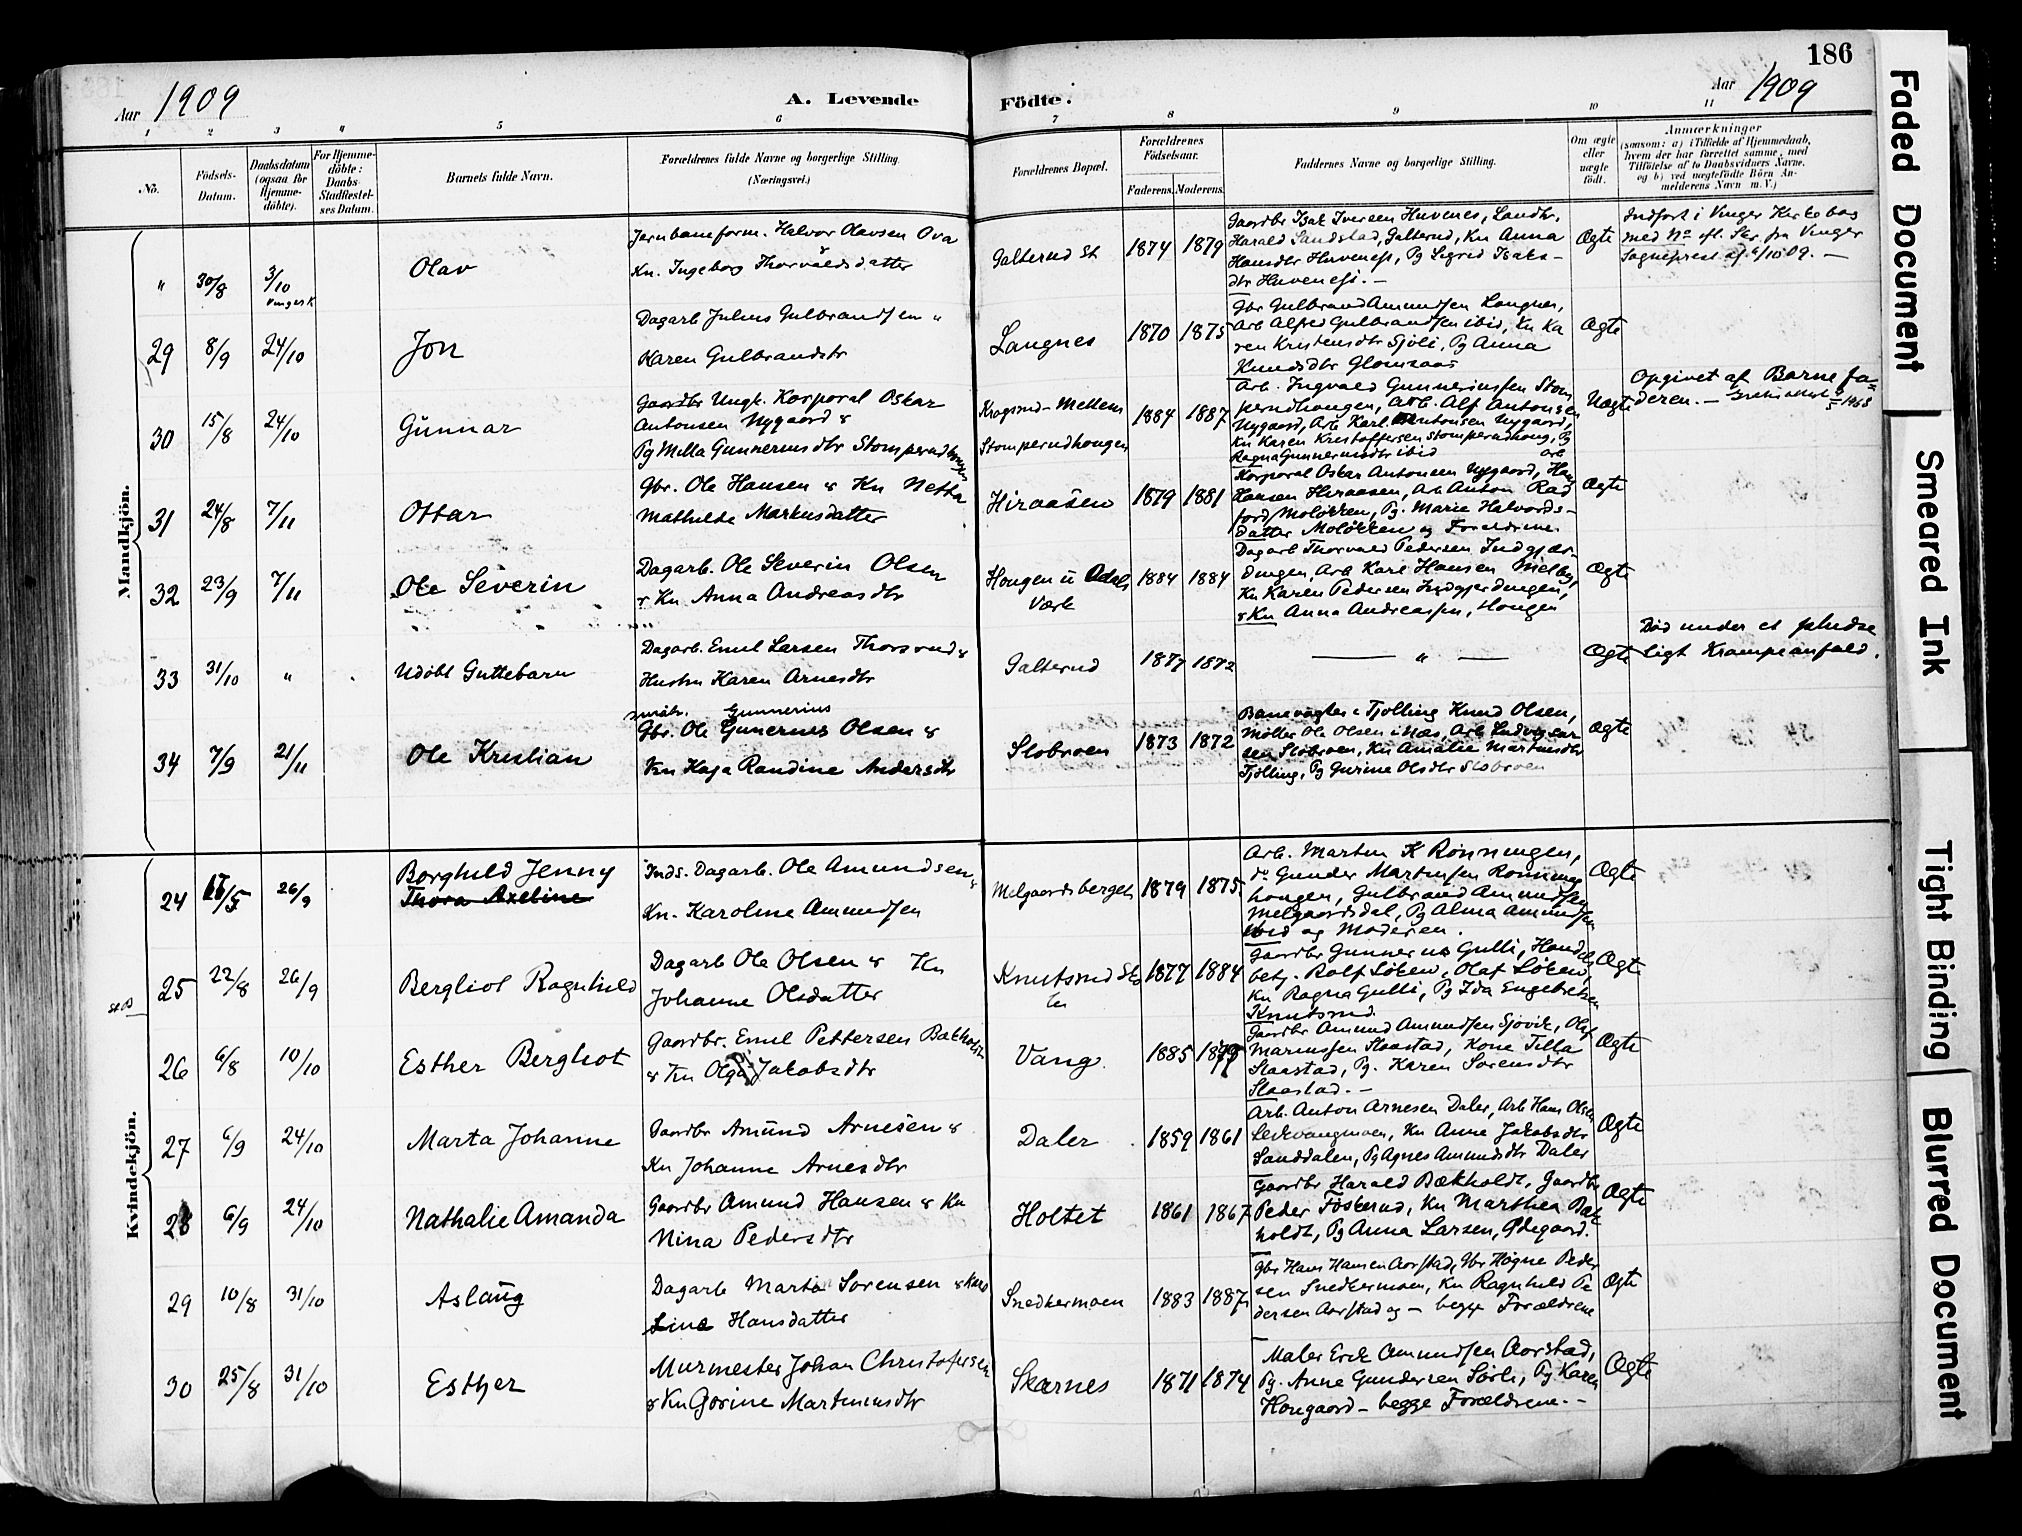 186
Aar 1909
A. Levende
Födte.
Aar 1909
1 2 3 4 5 6 7 8 9 10 11
No.
Födsels-
Datum.
Daabsdatum
(ogsaa for
Hjemme-
döbte).
For Hjemme-
döbte:
Daabs-
Stadfæstel-
ses Datum.
Barnets fulde Navn.
Forældrenes fulde Navne og borgerlige Stilling.
(Næringsvei.)
Forældrenes Bopæl.
Forældrenes
Födselsaar.
Faderens. Moderens.
Faddernes Navne og borgerlige Stilling.
Om ægte
eller
uægte
födt.
Anmærkninger
(saasom: a) i Tilfælde af Hjemmedaab,
hvem der har forrettet samme, med
Tilföielse af to Daabsvidners Navne.
og b) ved uægtefödte Börn An-
melderens Navn m. V.)
Mandkjön.
" 30/8 3/10
Vinger K
Olav
Jernbaneform. Halvor Olavsen Ova
Kn. Ingeborg Thorvaldsdatter
Galterud St 1874 1879
Gaardbr Isak Iversen Huvenes, Landhr.
Harald Sandstad, Galterud, Kn Anna
Hansdtr Huvenes, Pg Sigrid Isaks-
dtr Huvenes. -
Ægte
Indført i Vinger Kirkebog
med No efl. Skr. fra Vinger
Sogneprest af 4/10 09. -
29 8/9 24/10
Jon
Dagarb Julius Gulbrandsen "
Karen Gulbrandsdtr
Langnes 1870 1875
Gbr Gulbrand Amundsen Langnes,
Arb Alfred Gulbrandsen ibid, Kn Ka
ren Kristensdtr Sjøli, Pg Anna
Knudsdtr Glomsaas
Ægte
30 15/8 24/10
Gunnar
Gaardbr Ungk. Korporal Oskar
Antonsen Nygaard &
Pg Milla Gunneriusdtr Stomperudhaugen
Krogsrud-Mellem
Stomperudhaugen
1884 1887
Arb. Ingvald Gunneriussen Stom
perudhaugen, Arb. Alf Antonsen
Nygaard, Arb Karl Antonsen Nygaard,
Kn Karen Kristoffersen Stomperudhaug, Pg
Ragna Gunneriusdtr ibid
Uægte
Opgivet af Barnefa-
deren. -
31 24/8 7/11
Ottar
Gbr. Ole Hansen & Kn Netta
Mathilde Markusdatter
Hiraasen 1879 1881
Korporal Oskar Antonsen Nygaard, Arb Hans
Hansen Hiraasen, Arb Anton Rad
ford Moløkken, Pg. Marie Halvords-
datter Moløkken og Forældrene
Ægte
32 23/9 7/11
Ole Severin
Dagarb. Ole Severin Olsen
& Kn Anna Andreasdtr
Haugen u Odals
Værk
1884 1884
Dagarb Thorvald Pedersen Indgjær-
dingen, Arb Karl Hansen Melby,
Kn Karen Pedersen Indgjerdingen,
& Kn Anna Andreassen, Haugen
Ægte
33 31/10 "
Udøbt Guttebarn
Dagarb. Emil Larsen Thorsrud &
Hustru Karen Arnesdtr
Galterud 1877 1872
"
Ægte
Død under et pludse
ligt Krampeanfald.
34 7/9 21/11
Ole Kristian
Gunnerius
Gbr. Ole Gunernes Olsen &
Kn Kaja Randine Andersdtr
Slobroen 1873 1872
Banevogter i Tjølling Knud Olsen,
Møller Ole Olsen i Næs, Arb Ludvig Lar
sen Slobroen, Kn Amalie Martinsdtr
Tjølling, Pg Gurine Olsdtr Slobroen
Ægte
Kvindekjön.
24 17/5 26/9
Borghild Jenny
Thora Axeline
Inds. Dagarb. Ole Amundsen &
Kn. Karoline Amundsen
Melgaardsberget 1879 1875
Arb. Martin K Rønningen,
do Gunder Martinsen Rønnings
haugen, Gulbrand Amundsen
Melgaardsdal, Pg Alma Amundsen
ibid og Moderen.
Ægte
25 22/8 26/9
Bergliot Ragnhild
Dagarb Ole Olsen & Kn
Johanne Olsdatter
Knutsrud 1877 1884
Gaardbr Gunnerius Gulli, Handels
betj. Rolf Løken, Olaf Løken,
Kn Ragna Gulli, Pg Ida Engebretsen
Knutsrud
Ægte
26 6/8 10/10
Esther Bergliot
Gaardbr. Emil Pettersen Bækholdt
& Kn Olga Jakobsdtr
Vang 1885
Gaardbr Amund Amundsen Sjøvik, Olaf
Mariussen Slaastad, Kone Tilla
Slaastad, Pg. Karen Sørensdtr
Slaastad. -
Ægte
27 6/9 24/10
Marta Johanne
Gaardbr Amund Arnesen &
Kn Johanne Arnesdtr
Daler 1859 1861
Arb. Anton Arnesen Daler, Arb Hans Olsen
Leirvangmoen, Kn Anne Jakobsdtr
Sanddalen, Pg Agnes Amundsdtr Daler
Ægte
28 6/9 24/10
Nathalie Amanda
Gaardbr Amund Hansen & Kn
Nina Pedersdtr
Holtet 1861 1867
Gaardbr Harald Bækholdt, Gaardbr
Peder Foskerud, Kn Marthea Bæk
holdt, Pg Anna Larsen, Ødegaard.
Ægte
29 10/8 31/10
Aslaug
Dagarb Martin Sørensen & Kn
Lina Hansdatter
Snedkermoen 1883 1887
Gbr Hans Hansen Aarstad, Gbr Høgne Peder
sen Snedkermoen, Kn Ragnhild Pe
dersen Aarstad og - begge Forældrene
Ægte
30 25/8 31/10
Esther
Murmester Johan Christofersen
& Kn Gorine Martinusdtr
Skarnes 1871 1874
Maler Erik Amundsen Aarstad,
Pg. Anne Gundersen Sørli, Pg Karen
Haugaard - begge Forældrene. -
Ægte
Faded Document
Smeared Ink
Tight Binding
Blurred Document